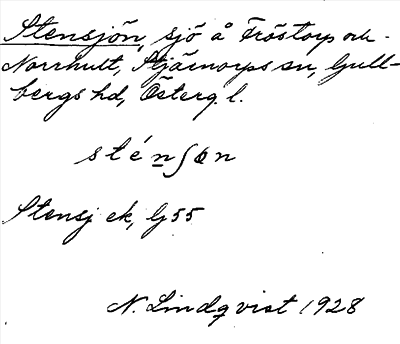 Stensjön, sjö å Fröstorp och
Norrhult, Stjärnorps sn, Gull-
bergs hd, Österg. l.
sténʃøn
Stensj ek, G 55
N. Lindqvist 1928